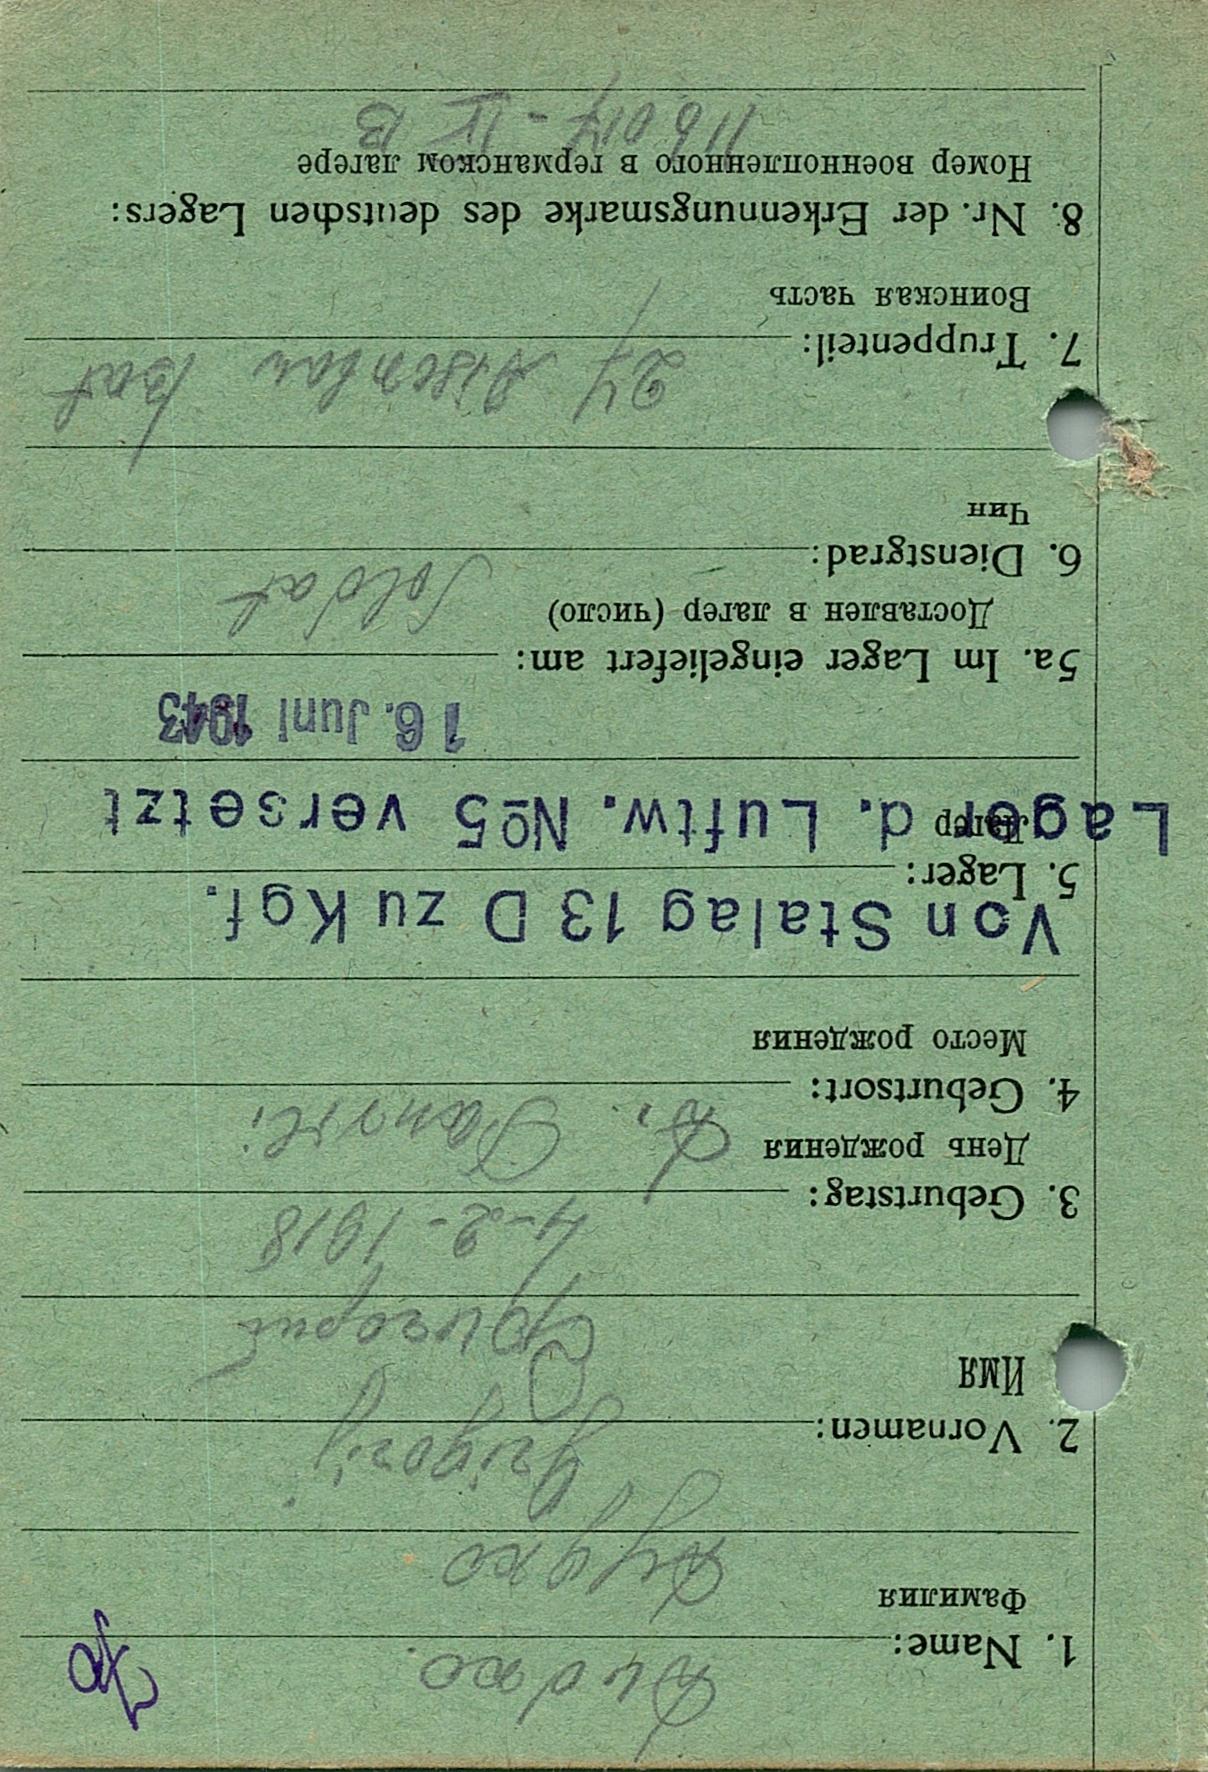 1. Name: Dudko.
Фамилия Дудко
2. Vornamen: Grigorij
Имя Григорий
3. Geburtstag: 4-2-1918
День рождения
4. Geburtsort:
Место рождения
Von Stalag 13 D zu Kgf.
5. Lager:
Лагер
Lager d. Luftw. № 5 versetzt
16. Juni 1943
5a. Im Lager eingeliefert am:
Доставлен в лагер (число)
6. Dienstgrad: Soldat
Чин
7. Truppenteil: 24 Bat
Воинская часть
8. Nr. der Erkennungsmarke des deutschen Lagers:
Номер военнопленного в германском лагере
116017 - IV B